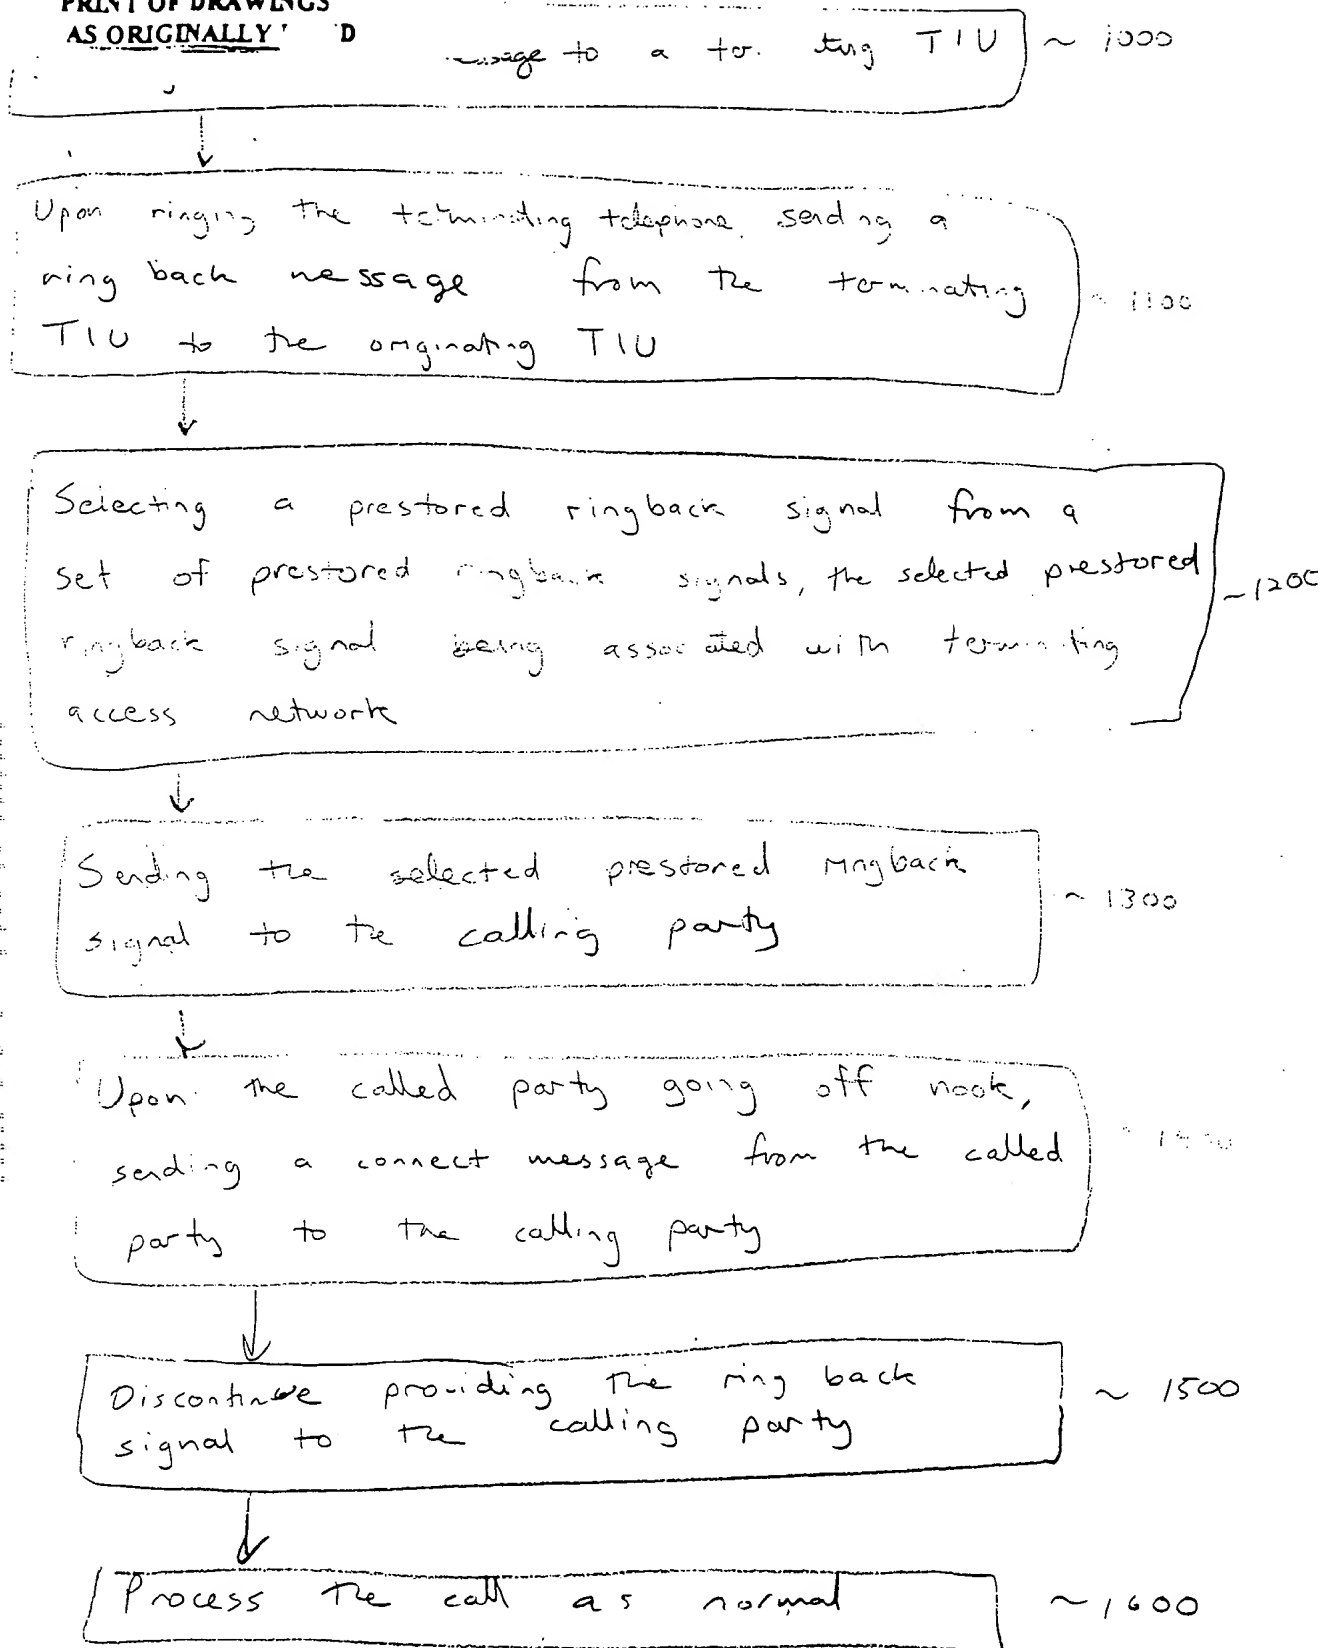 PRINT OF DRAWINGS
AS ORIGINALLY
to a TIU ~ 1000
Upon ringing the terminating telephone, sending a
ring back message from the terminating
TIU to the originating TIU
~ 1100
Selecting a prestored ringback signal from a
set of prestored ringback signals, the selected prestored
~ 1200
ringback signal being associated with terminating
access network
Sending the selected prestored ringback
signal to the calling party
~ 1300
Upon the called party going off hook,
sending a connect message from the called
party to the calling party
Discontinue providing the ring back
signal to the calling party
~ 1500
Process the call as normal ~ 1600